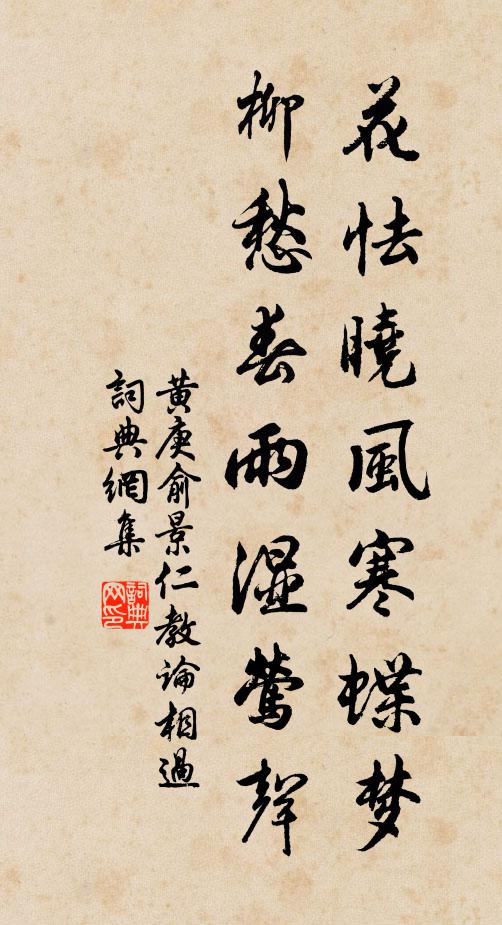 花怯曉風寒蝶梦
柳愁春雨湿鶯聲
黃庚俞景仁教諭相過
詞典網集
詞典网印